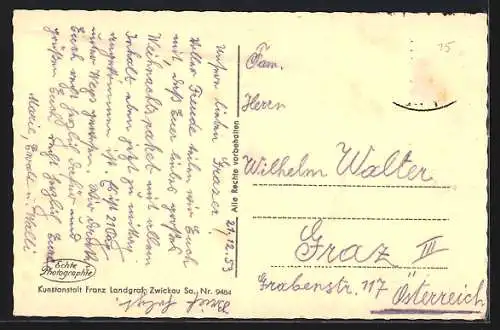 21.12.53
Unsere lieben Grazer!
Voller Freude teilen wir Euch
mit, daß Euer liebes großes
Weihnachtspaket mit allem
Inhalt eben jetzt zu mittag
angekommen ist.
unter Wegs gewesen. Wir
Euch recht herzlich dafür und
grüßen Euch recht herzlich Eure
Walli
Brief folgt.
Echte
Photographie
Kunstanstalt Franz Landgraf, Zwickau Sa., Nr. 9484
Alle Rechte vorbehalten
15
Fam.
Herrn
Wilhelm Walter
Graz III
Grabenstr. 117
Österreich